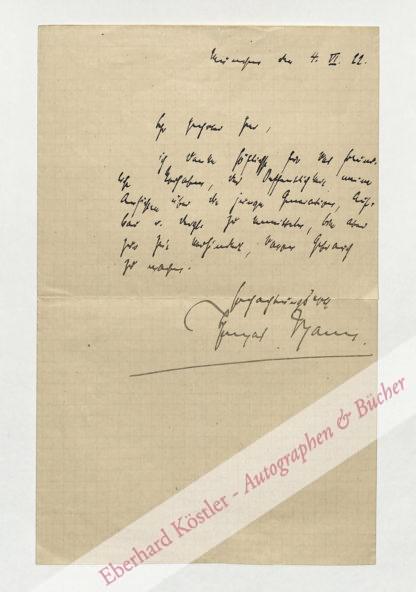 München den 4. VI. 22.
Sehr geehrter Herr,
ich danke höflichst für das freund-
liche Vorhaben, der Oeffentlichkeit meine
Ansichten über die junge Generation,
zu vermitteln, bin aber
zur Zeit verhindert, davon Gebrauch
zu machen.
Hochachtungsvoll
Thomas Mann.
Eberhard Köstler - Autographen & Bücher